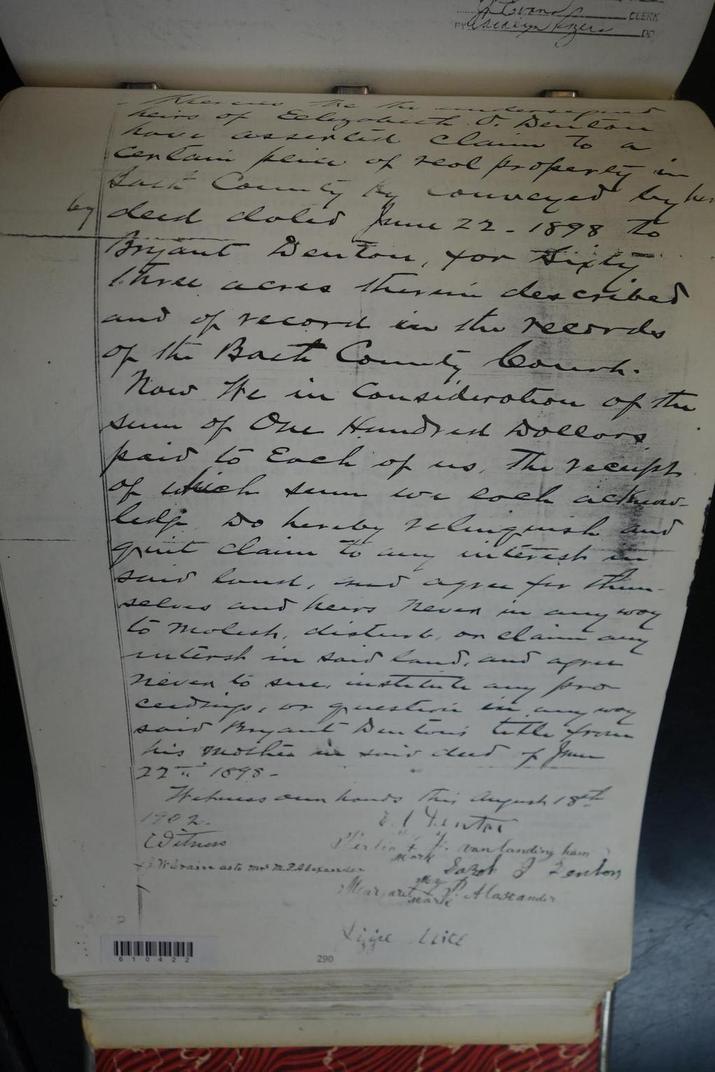 CLERK
DC
Whereas we the undersigned
heirs of Elizabeth J. Denton
have asserted claim to a
certain peice of real property in
Bath County Ky conveyed by her
by
deed dated June 22 - 1898 to
Bryant Denton, for Sixty
three acres therein described
and of record in the records
of the Bath County Court.
Now We in Consideration of the
sum of One Hundred Dollars
paid to Each of us, The receipt
of which sum we each acknow-
ledge, Do hereby relinquish and
quit claim to any interest in
said land, and agree for them-
selves and heirs never in any way
to molest, disturb, or claim any
interest in said land, and agree
never to sue, institute any pro
ceedings, or question in any way
said Bryant Denton's title from
his mother in said deed of June
22nd 1898 -
Witness our hands this August 18th
1902.
Denton
Witness
vanlandingham
mark
J Denton
as to M. P. Alexander
Margaret P. Alaxander
mark
Lizzie
610422
290